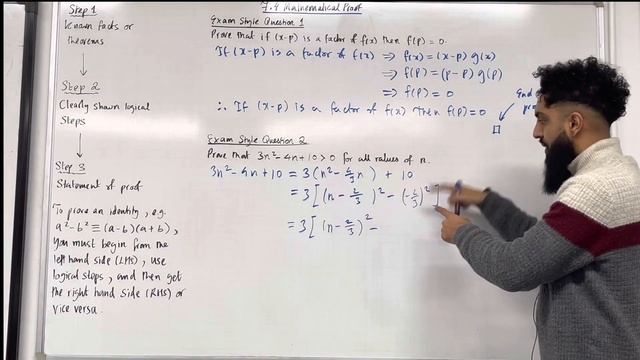 7.4 Mathematical Proof
Step 1
known facts or
theorems
Step 2
Clearly shown logical
Steps
Step 3
Statement of proof
To prove an identity, e.g.
a²-b² ≡ (a-b)(a+b),
You must begin from the
left hand side (LHS), use
logical steps, and then get
the right hand side (RHS) or
vice versa.
Exam Style Question 1
Prove that if (x-p) is a factor of f(x) then f(p) = 0.
If (x-p) is a factor of f(x) ⇒ f(x) = (x-p) g(x)
⇒ f(p) = (p-p) g(p)
⇒ f(p) = 0
∴ If (x-p) is a factor of f(x) then f(p)=0
End
Exam Style Question 2
Prove that 3n²-4n+10>0 for all values of n.
3n²-4n+10 = 3(n²-4/3n) + 10
= 3[(n-2/3)² - (-2/3)²]
= 3[(n-2/3)² -